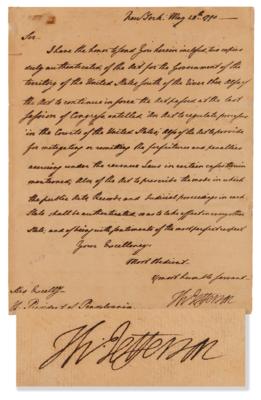 New York. May 28th 1790.
Sir
I have the honor to send You herein inclosed, two copies
duly authenticated of the Act for the Government of the
territory of the United States south of the River Ohio. Also of
the Act to continue in force the Act passed at the last
session of Congress entitled "An Act to regulate processes
in the Courts of the United States, Also of the Act to provide
for mitigating or remitting the forfeitures and penalties
accruing under the revenue Laws in certain cases therein
mentioned, Also of the Act to prescribe the mode in which
the public Acts, Records and Judicial proceedings in each
State shall be authenticated, so as to take effect in every other
State; and of being with sentiments of the most perfect respect
Your Excellency
Most obedient
& most humble servant
Th: Jefferson
His Excelly
President of Pennsylvania
Th: Jefferson